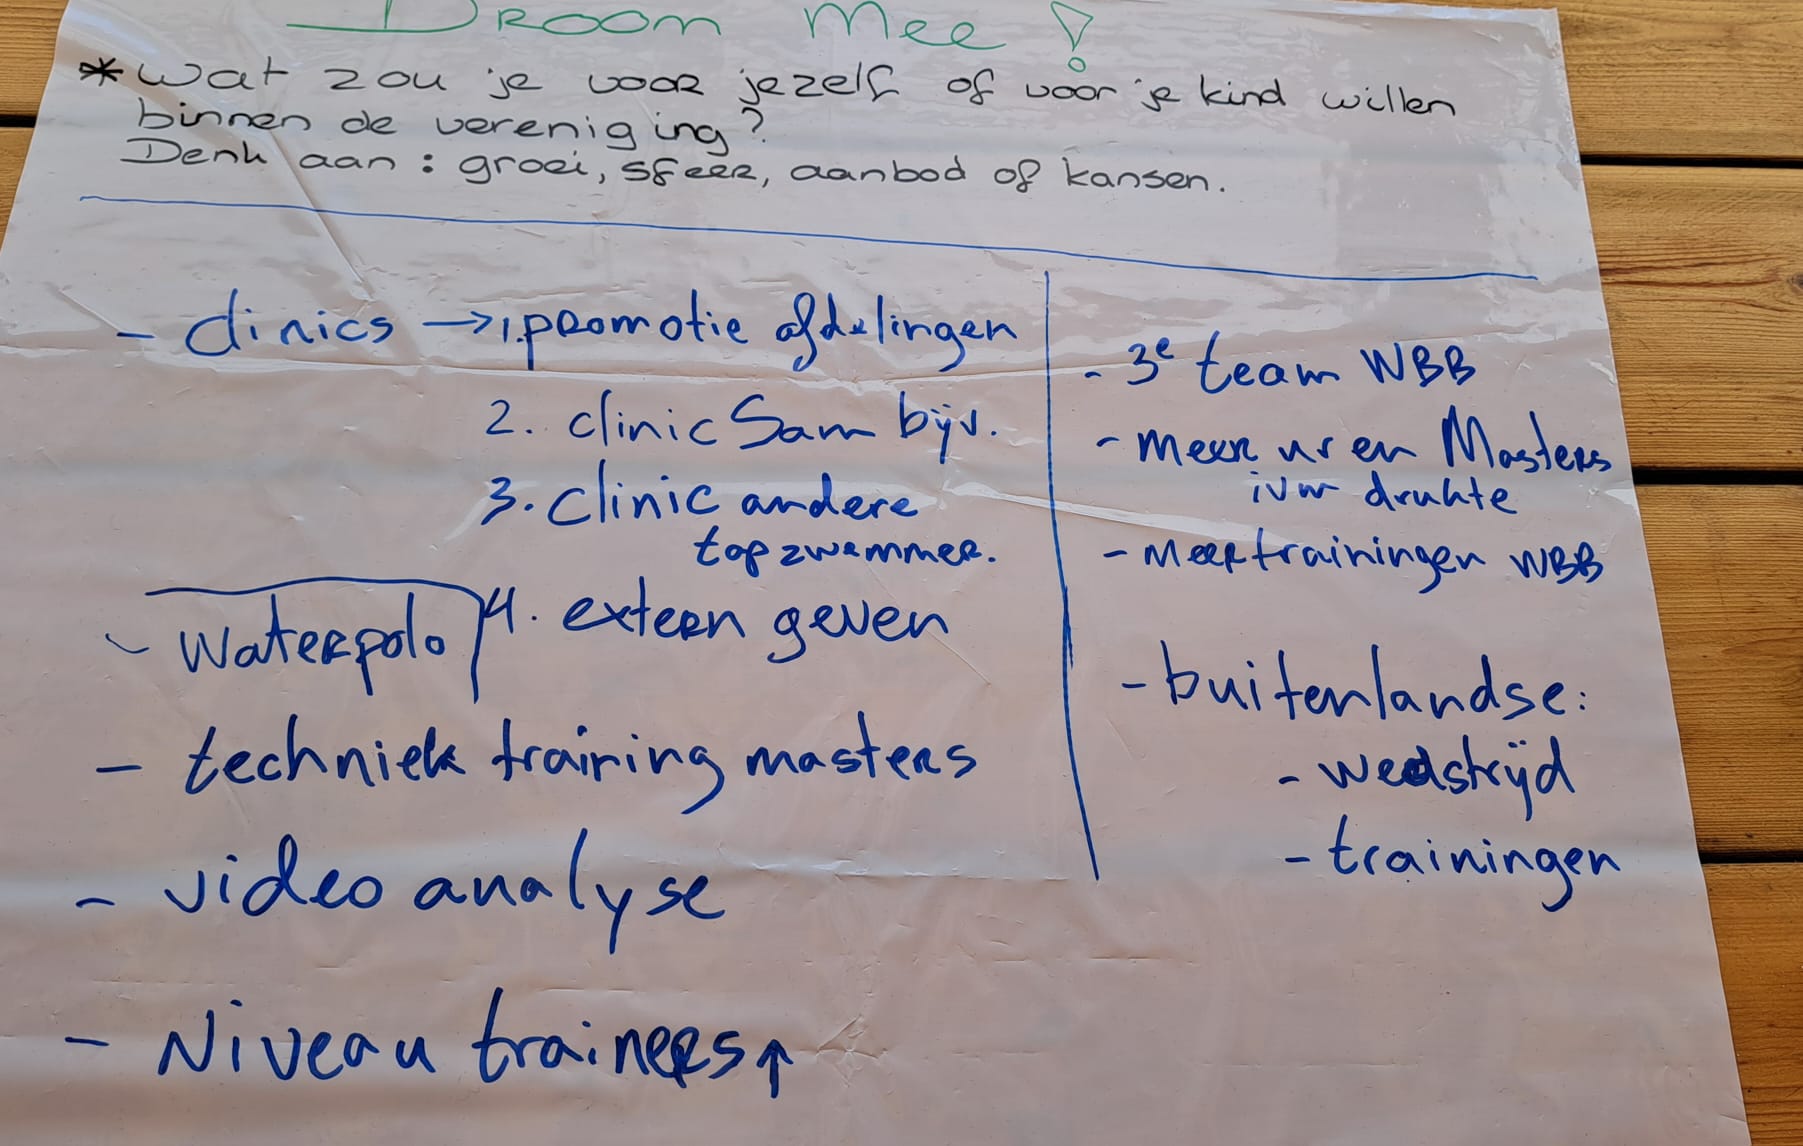 Droom mee!
* Wat zou je voor jezelf of voor je kind willen
binnen de vereniging?
Denk aan: groei, sfeer, aanbod of kansen.
- clinics → 1. promotie afdelingen
2. clinic Sam bijv.
3. clinic andere
topzwemmer.
4. extern geven
- Waterpolo
- techniek training masters
- video analyse
- Niveau trainers ↑
- 3e team WBB
- meer uren Masters
ivm drukte
- Meer trainingen WBB
- buitenlandse:
- wedstrijd
- trainingen